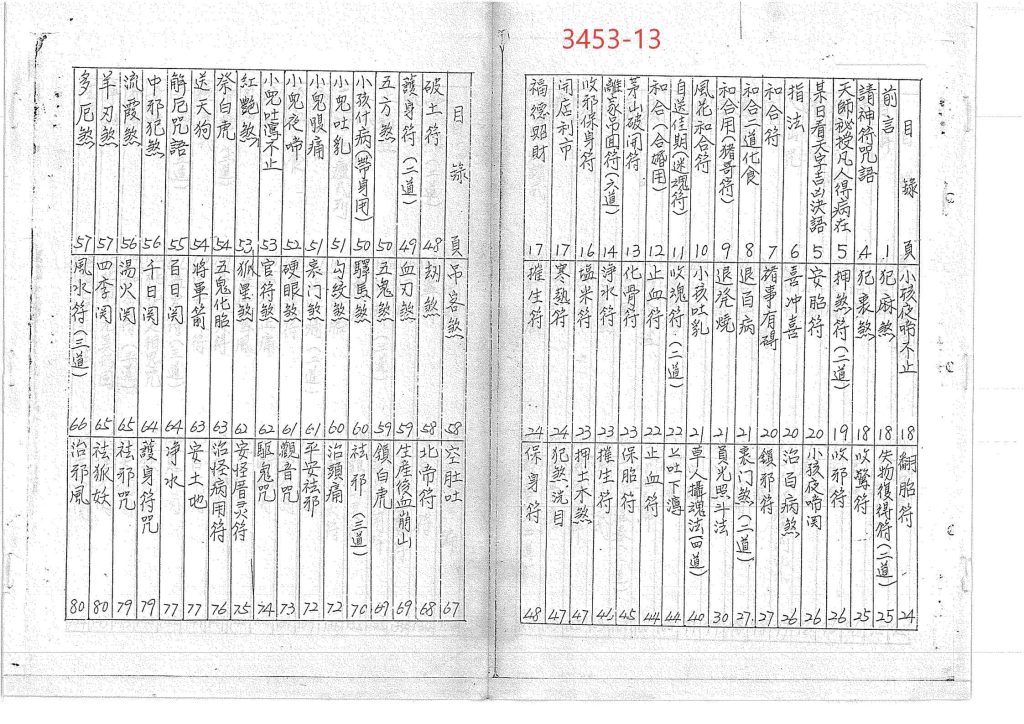 3453-13
目錄 頁
前言 1
請神符咒語 4
天師祕授凡人得病在 5
某日看天字吉凶決語 5
指法 6
和合符 7
和合二道化食 8
和合用(豬哥符) 9
風花和合符 10
自送佳期(迷魂符) 11
和合(合婚用) 12
茅山破閉符 13
離家吊回符(六道) 14
收邪保身符 16
開店利市 17
福德賜財 17
小孩夜啼不止 18
犯麻煞 18
犯喪煞 18
押煞符(二道) 19
安胎符 20
喜冲喜 20
諸事有碍 20
退百病 21
退発燒 21
小孩吐乳 21
收魂符(二道) 22
止血符 22
化骨符 23
淨水符 23
塩米符 23
寒熱符 24
摧生符 24
翻胎符 24
失物復得符(二道) 25
收驚符 25
收邪符 26
小孩夜啼関 26
治百病煞 26
鎖邪符 27
喪门煞(二道) 27
員光照斗法 30
草人攝魂法(四道) 40
上吐下瀉 44
止血符 44
保胎符 45
摧生符 46
押土木煞 47
犯煞洗目 47
保身符 48
目錄 頁
破土符 48
護身符(二道) 49
五方煞 50
小孩什病(帶身用) 50
小鬼吐乳 51
小鬼腹痛 51
小鬼夜啼 52
小鬼吐瀉不止 53
紅艷煞 53
祭白虎 54
送天狗 54
解厄咒語 55
中邪犯煞 56
流霞煞 56
羊刃煞 57
多厄煞 57
吊客煞 58
刼煞 58
血刃煞 59
五鬼煞 59
驛馬煞 60
勾紋煞 60
喪门煞 61
硬眼煞 61
官符煞 62
狐星煞 62
五鬼化胎 63
將軍箭 63
百日関 64
千日関 64
湯火関 65
四季関 65
風水符(三道) 66
空肚吐 67
北帝符 68
生産後血崩山 69
鎖白虎 69
祛邪(三道) 70
治頭痛 72
平安祛邪 72
觀音咒 73
驅鬼咒 74
安怪厝灵符 75
治怪病用符 76
安土地 77
净水 77
護身符咒 79
祛邪咒 79
祛狐妖 80
治邪風 80